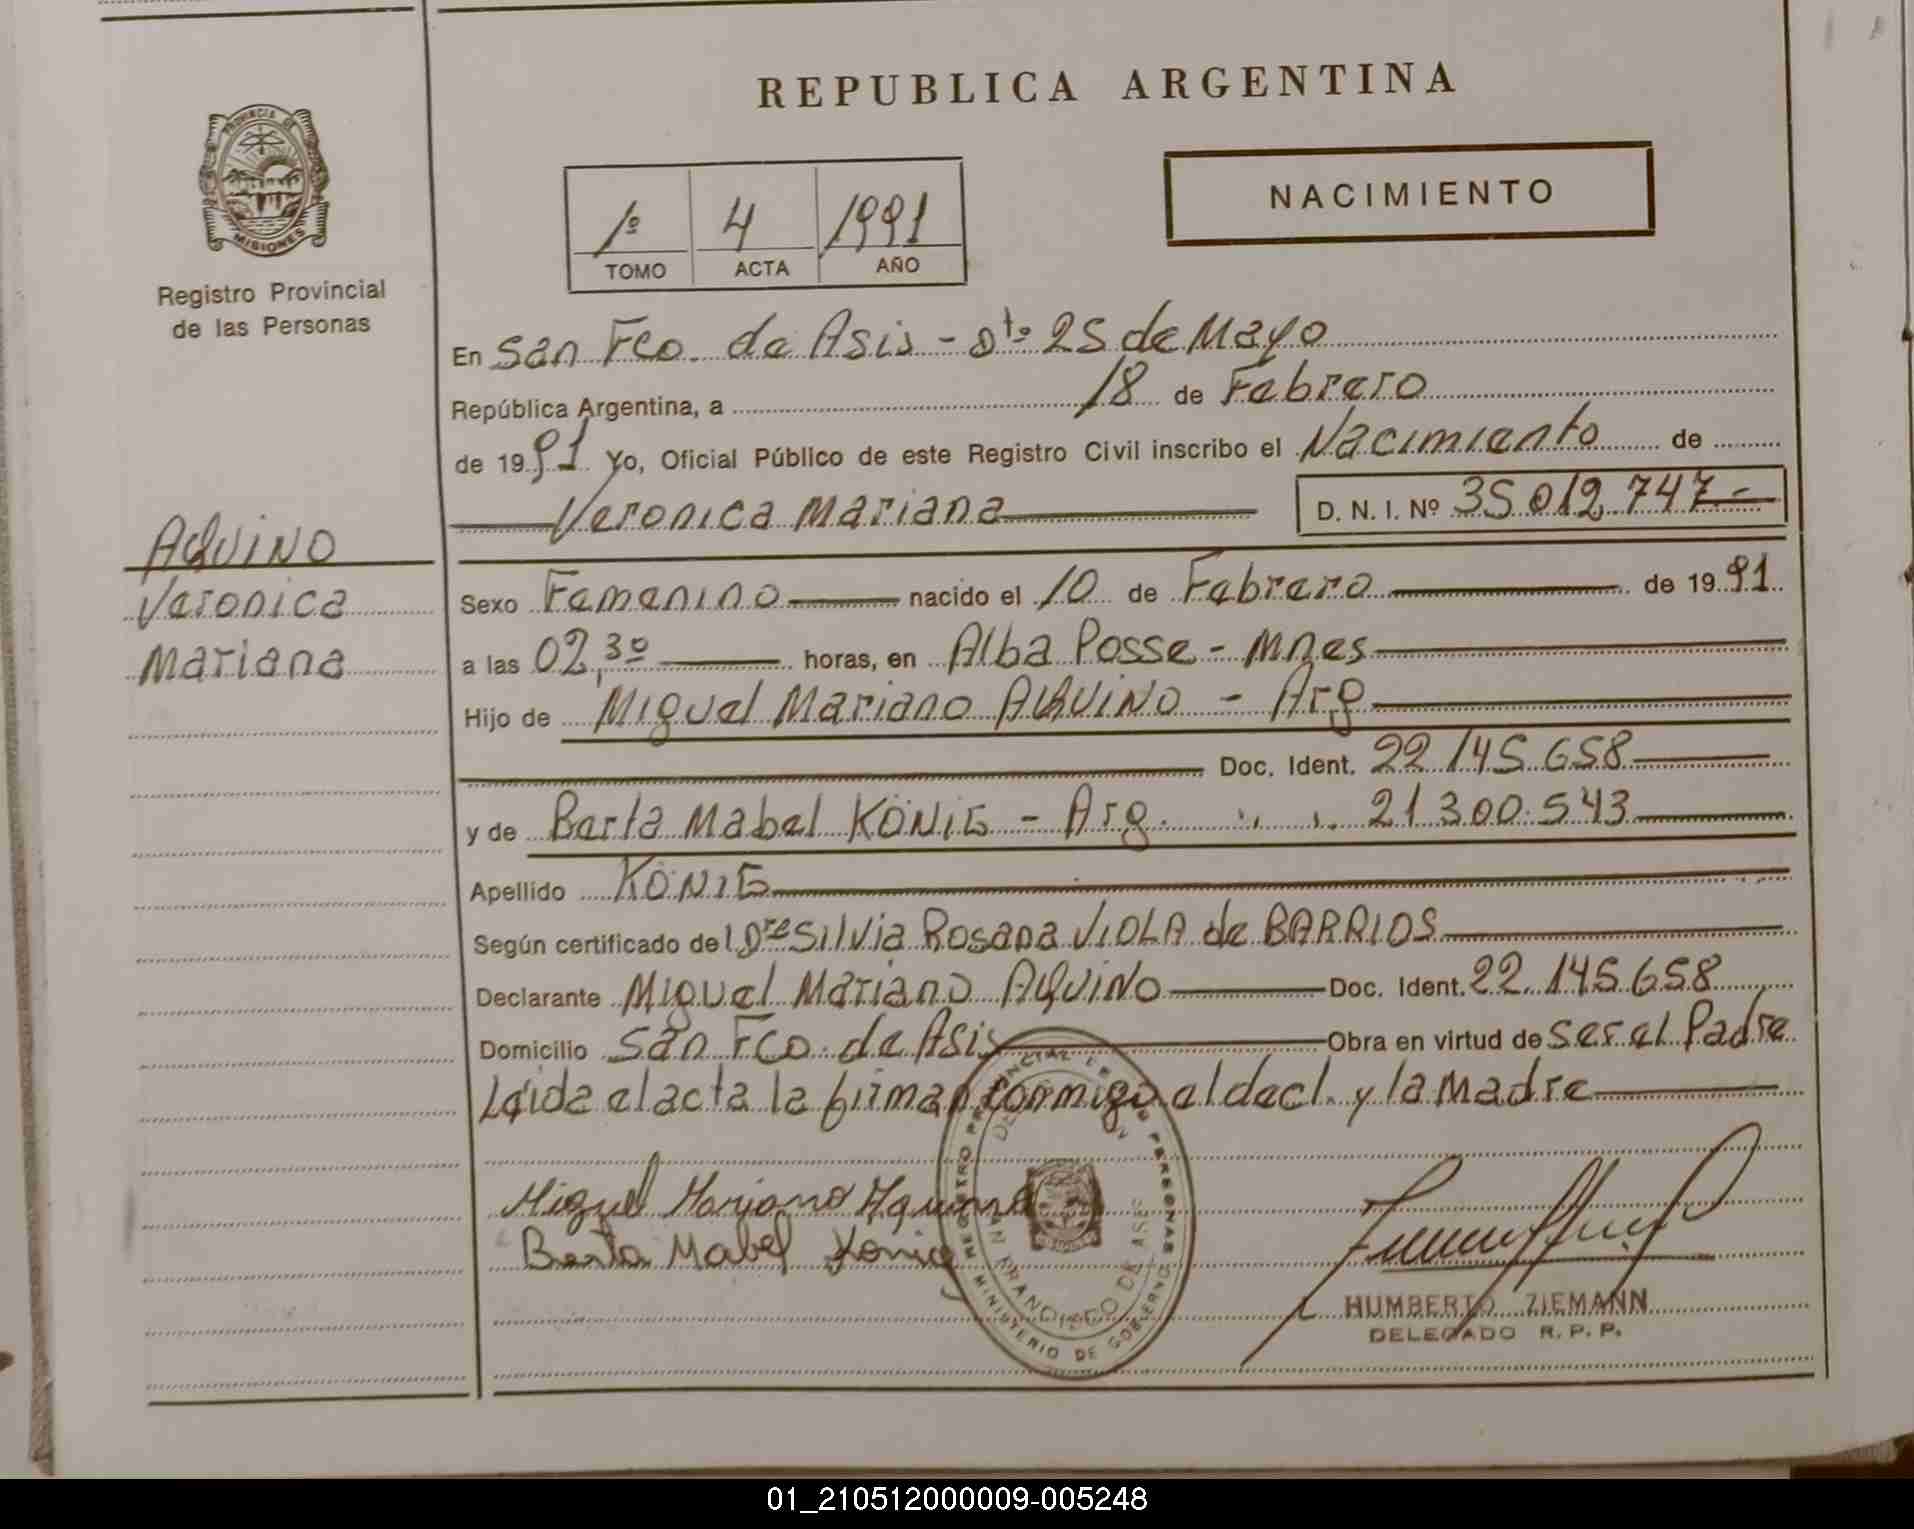 REPUBLICA ARGENTINA
PROVINCIA DE
MISIONES
Registro Provincial
de las Personas
NACIMIENTO
1º 4 1991
TOMO ACTA AÑO
En San Fco. de Asis - Dto 25 de Mayo
República Argentina, a 18 de Febrero
de 1991 Yo, Oficial Público de este Registro Civil inscribo el Nacimiento de
Veronica Mariana D. N. I. Nº 35 012 747-
AQUINO
Veronica
Mariana
Sexo Femenino nacido el 10 de Febrero de 1991
a las 02,30 horas, en Alba Posse - Mnes
Hijo de Miguel Mariano AQUINO - Arg
Doc. Ident. 22 145 658
y de Berta Mabel KÖNIG - Arg. " " 21 300.543
Apellido KÖNIG
Según certificado del Dra Silvia Rosana VIOLA de BARRIOS
Declarante Miguel Mariano AQUINO Doc. Ident. 22.145.658
Domicilio San Fco. de Asis Obra en virtud de ser el Padre
Leida el acta la firman conmigo el decl. y la Madre
Miguel Mariano Aquino
Berta Mabel König
REGISTRO PROVINCIAL DE LAS PERSONAS
SAN FRANCISCO DE ASIS
MINISTERIO DE GOBIERNO
HUMBERTO ZIEMANN
DELEGADO R. P. P.
01_210512000009-005248